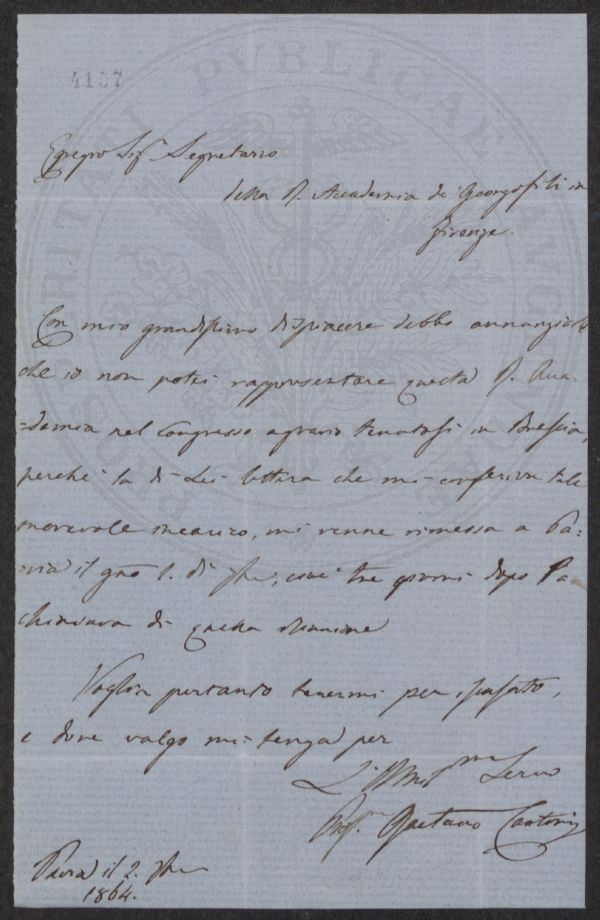 4107
Egregio Sigr Segretario
della R. Accademia de' Georgofili in
Firenze.
Con mio grandissimo dispiacere debbo annunziarle
che io non potei rappresentare questa R. Acca-
=demia nel Congresso agrario tenutosi in Brescia,
perché la di Lei lettera che mi conferiva tale
onorevole incarico, mi venne rimessa a Pa=
via il gno 1. di 7bre, cioè tre giorni dopo la
chiusura di quella riunione
Voglia pertanto tenermi per iscusato,
e dove valgo mi tenga per
L'Umilmo Servo
Prof. Gaetano Cantoni
Pavia il 2. 7bre
1864.